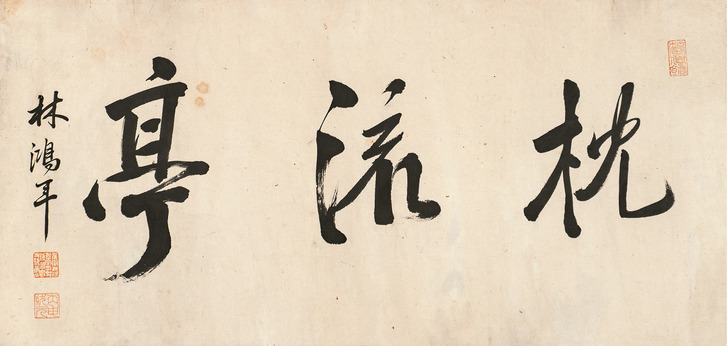 枕流亭
林鴻年